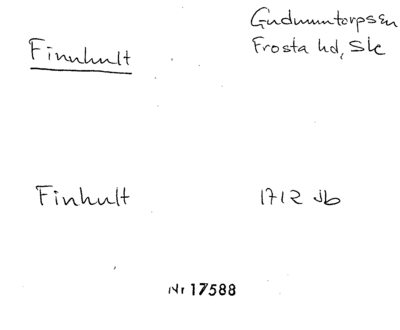 Finnhult
Gudmuntorpsen
Frosta hd, Sk
Finhult
1712 Jb
Nr 17588